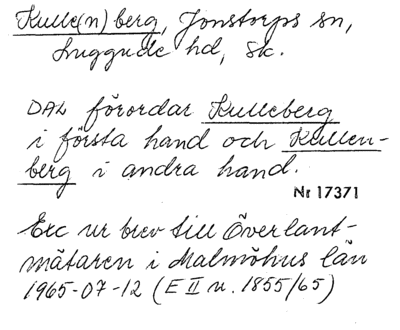 Kulle(n)berg, Jonstorps sn,
Luggude hd, Sk.
DAL förordar Kulleberg
i första hand och Kullen-
berg i andra hand.
Nr 17371
Exc ur brev till Överlant-
mätaren i Malmöhus län
1965-07-12 (E II n. 1855/65)